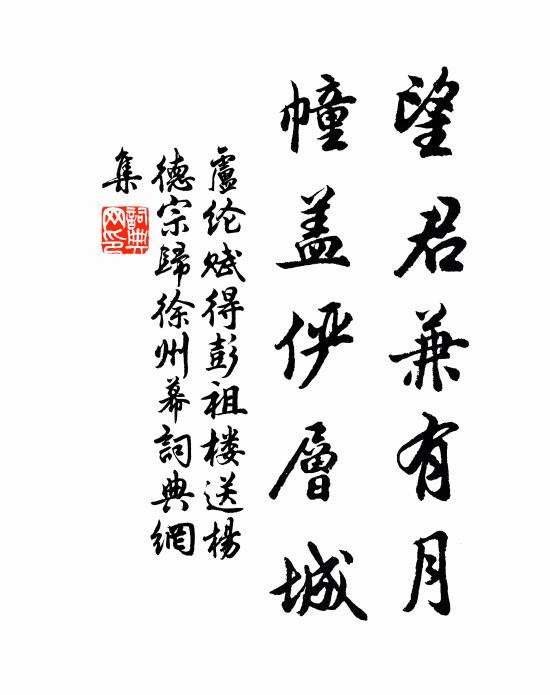 望君兼有月
幢盖俨層城
盧纶赋得彭祖楼送楊
德宗歸徐州幕詞典網
集
詞典
网印